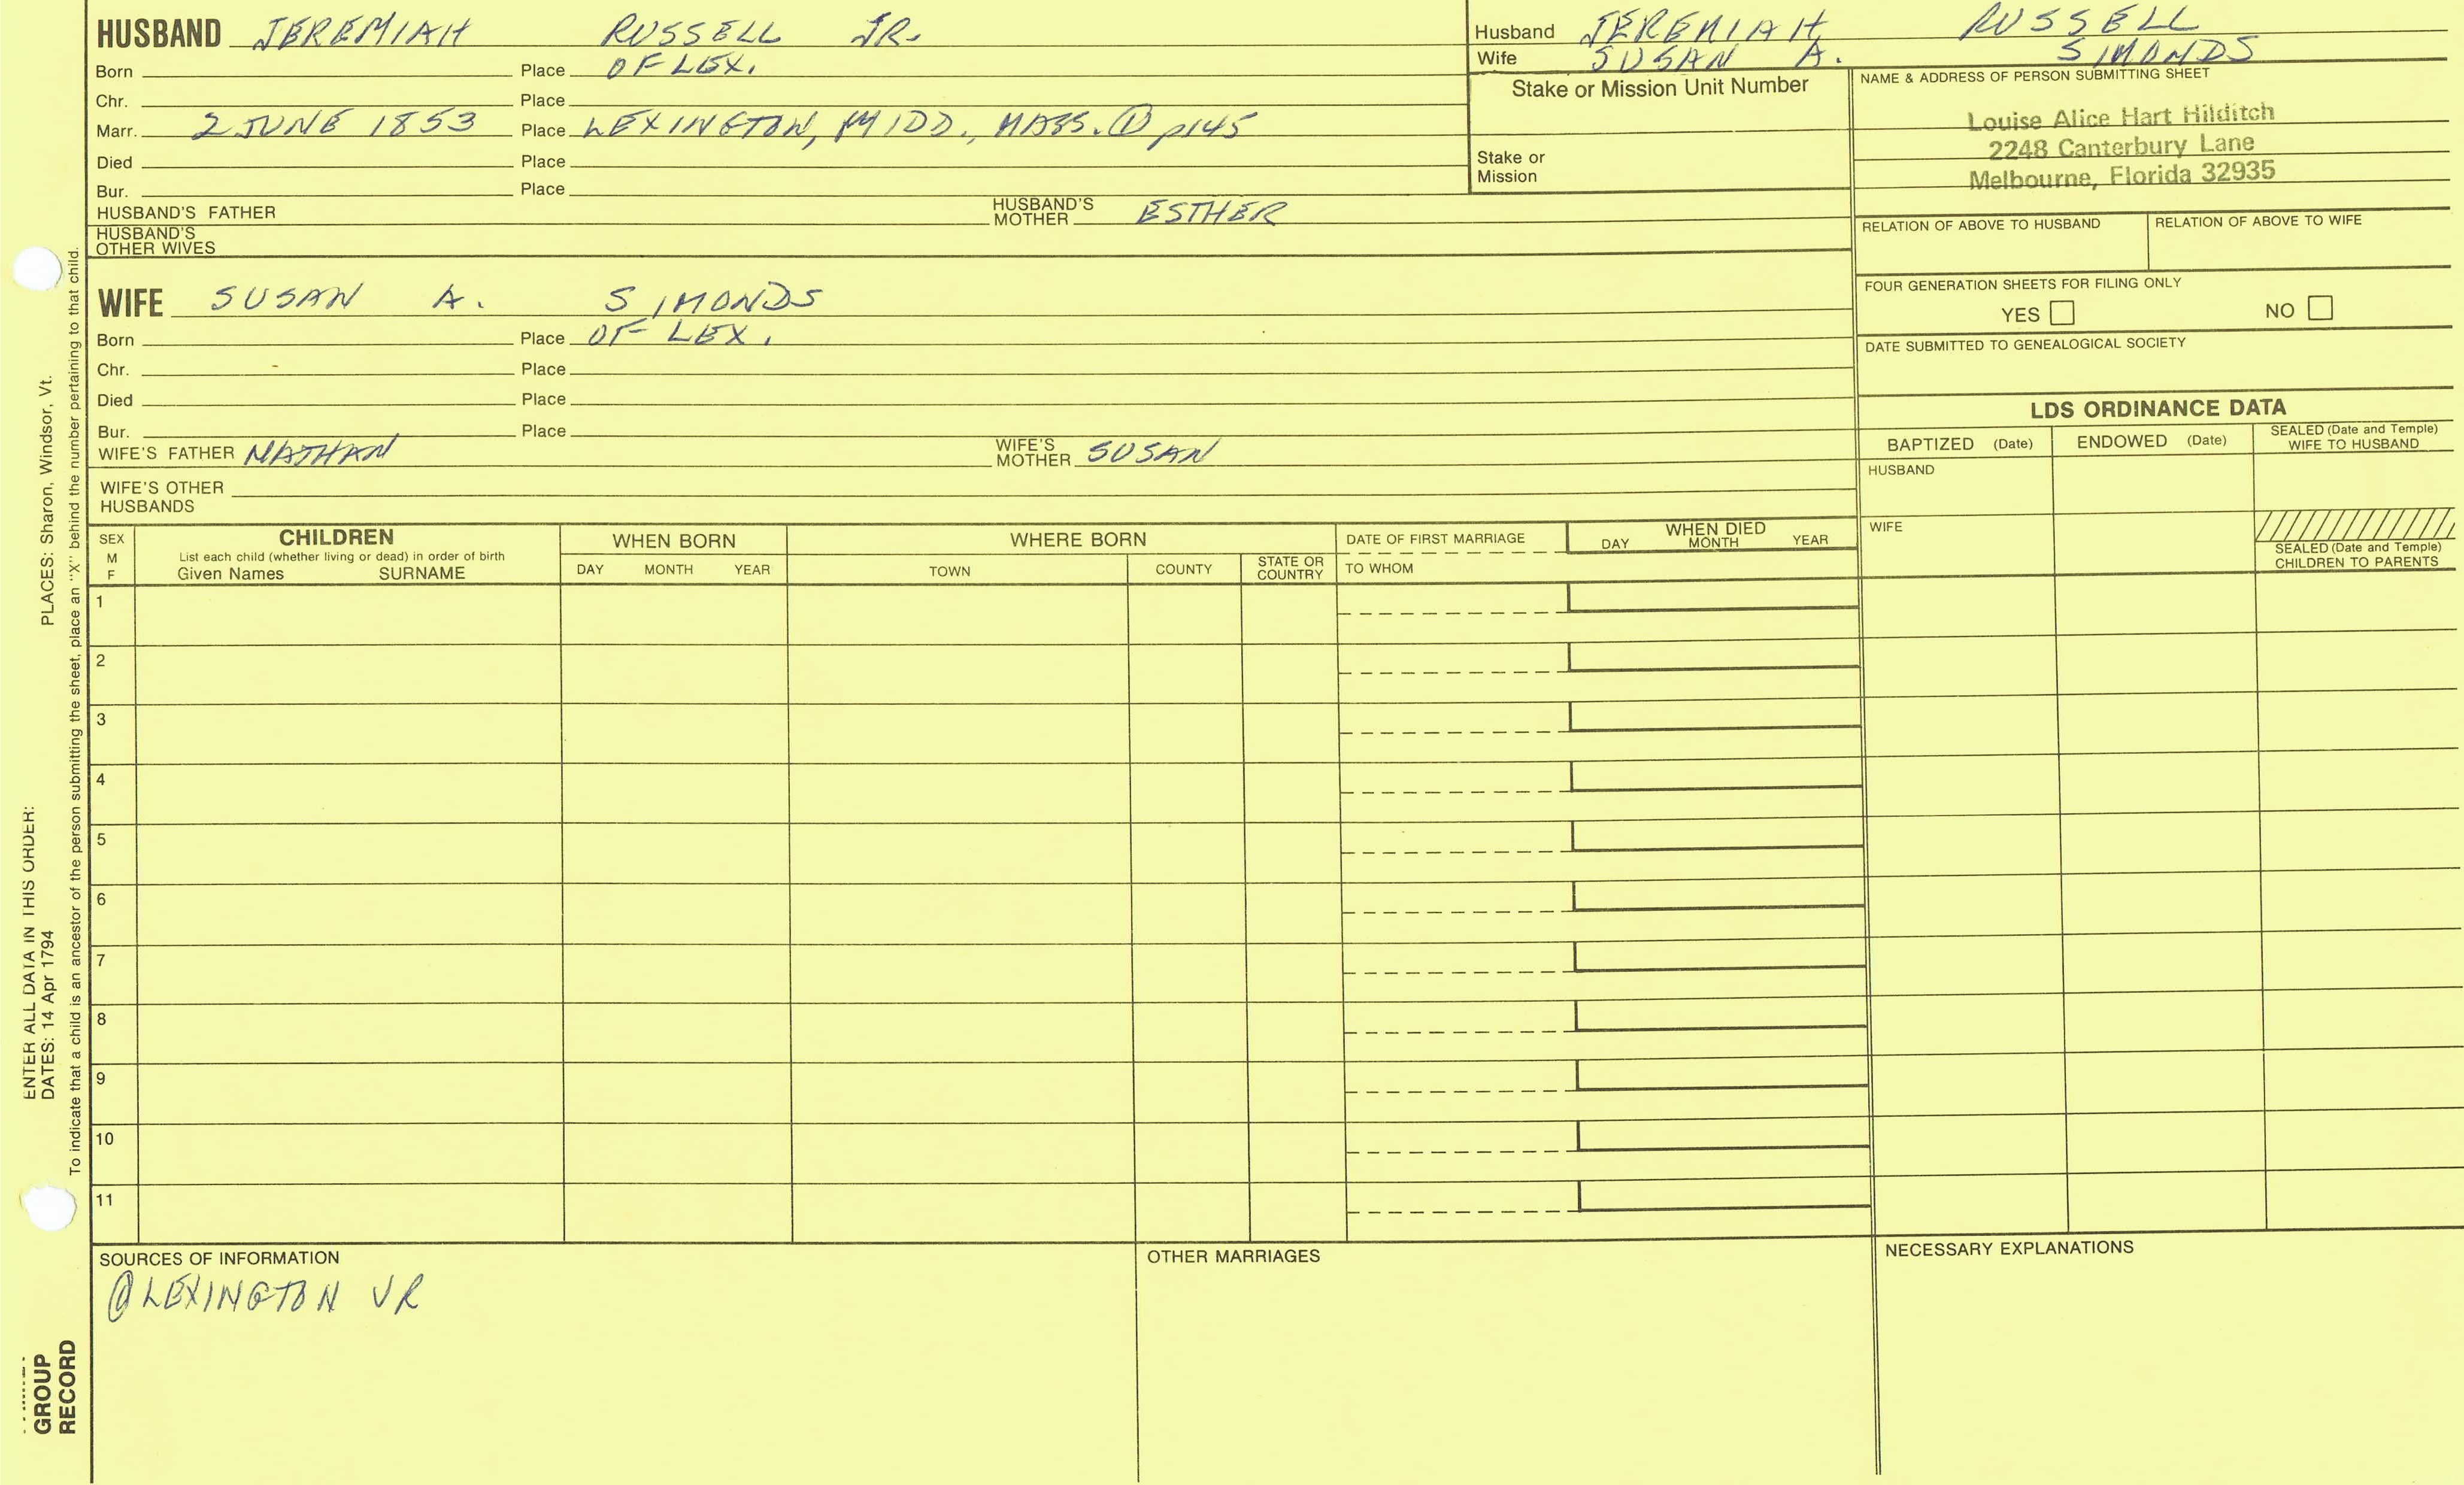 HUSBAND JEREMIAH RUSSELL JR.
Born Place OF LEX.
Chr. Place
Marr. 2 JUNE 1853 Place LEXINGTON, MIDD., MASS. ① p145
Died Place
Bur. Place
HUSBAND'S FATHER HUSBAND'S MOTHER ESTHER
HUSBAND'S OTHER WIVES
Husband JEREMIAH RUSSELL
Wife SUSAN A. SIMONDS
Stake or Mission Unit Number
Stake or
Mission
NAME & ADDRESS OF PERSON SUBMITTING SHEET
Louise Alice Hart Hilditch
2248 Canterbury Lane
Melbourne, Florida 32935
RELATION OF ABOVE TO HUSBAND RELATION OF ABOVE TO WIFE
FOUR GENERATION SHEETS FOR FILING ONLY
YES NO
DATE SUBMITTED TO GENEALOGICAL SOCIETY
WIFE SUSAN A. SIMONDS
Born Place OF LEX.
Chr. Place
Died Place
Bur. Place
WIFE'S FATHER NATHAN WIFE'S MOTHER SUSAN
WIFE'S OTHER
HUSBANDS
LDS ORDINANCE DATA
BAPTIZED (Date) ENDOWED (Date) SEALED (Date and Temple) WIFE TO HUSBAND
HUSBAND
WIFE
SEALED (Date and Temple)
CHILDREN TO PARENTS
SEX
M
F
CHILDREN
List each child (whether living or dead) in order of birth
Given Names SURNAME
WHEN BORN
DAY MONTH YEAR
WHERE BORN
TOWN COUNTY STATE OR COUNTRY
DATE OF FIRST MARRIAGE
TO WHOM
WHEN DIED
DAY MONTH YEAR
1
2
3
4
5
6
7
8
9
10
11
SOURCES OF INFORMATION
① LEXINGTON VR
OTHER MARRIAGES
NECESSARY EXPLANATIONS
ENTER ALL DATA IN THIS ORDER:
DATES: 14 Apr 1794 PLACES: Sharon, Windsor, Vt.
To indicate that a child is an ancestor of the person submitting the sheet, place an "X" behind the number pertaining to that child.
GROUP
RECORD